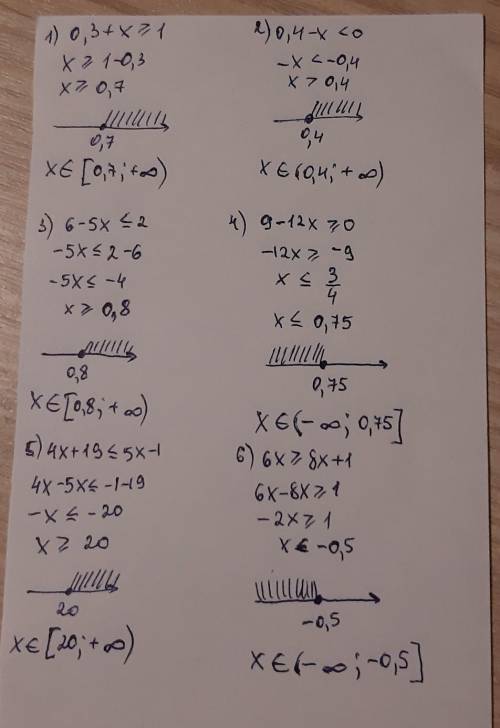 1) 0,3+x ≥ 1
x ≥ 1-0,3
x ≥ 0,7
0,7
x ∈ [0,7; +∞)
2) 0,4-x < 0
-x < -0,4
x > 0,4
0,4
x ∈ (0,4; +∞)
3) 6-5x ≤ 2
-5x ≤ 2-6
-5x ≤ -4
x ≥ 0,8
0,8
x ∈ [0,8; +∞)
4) 9-12x ≥ 0
-12x ≥ -9
x ≤ 3/4
x ≤ 0,75
0,75
x ∈ (-∞; 0,75]
5) 4x+19 ≤ 5x-1
4x-5x ≤ -1-19
-x ≤ -20
x ≥ 20
20
x ∈ [20; +∞)
6) 6x ≥ 8x+1
6x-8x ≥ 1
-2x ≥ 1
x ≤ -0,5
-0,5
x ∈ (-∞; -0,5]